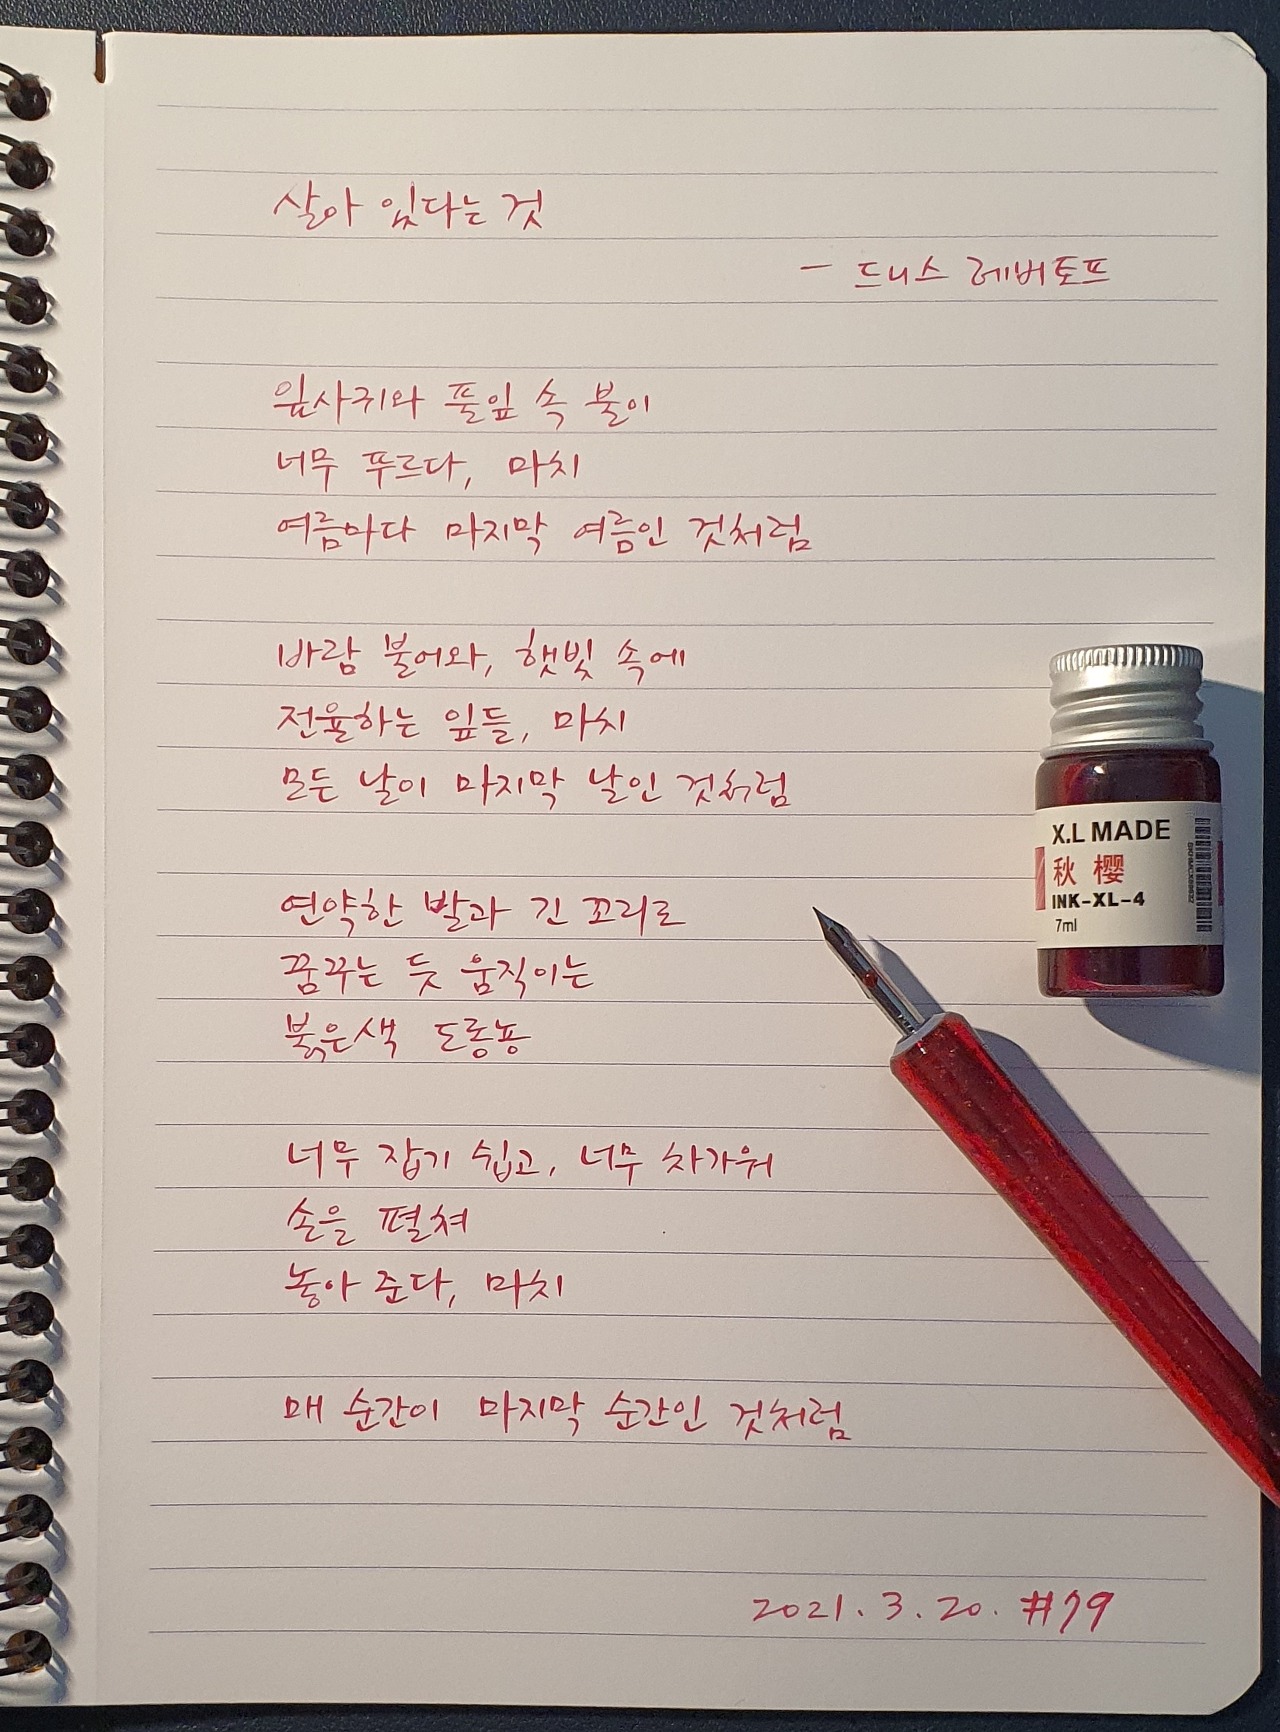 살아 있다는 것
- 드니스 레버토프
잎사귀와 풀잎 속 불이
너무 푸르다, 마치
여름마다 마지막 여름인 것처럼
바람 불어와, 햇빛 속에
전율하는 잎들, 마치
모든 날이 마지막 날인 것처럼
연약한 발과 긴 꼬리로
꿈꾸는 듯 움직이는
붉은색 도롱뇽
너무 잡기 쉽고, 너무 차가워
손을 펼쳐
놓아 준다, 마치
매 순간이 마지막 순간인 것처럼
2021. 3. 20. #79
X.L MADE
秋 樱
INK-XL-4
7ml